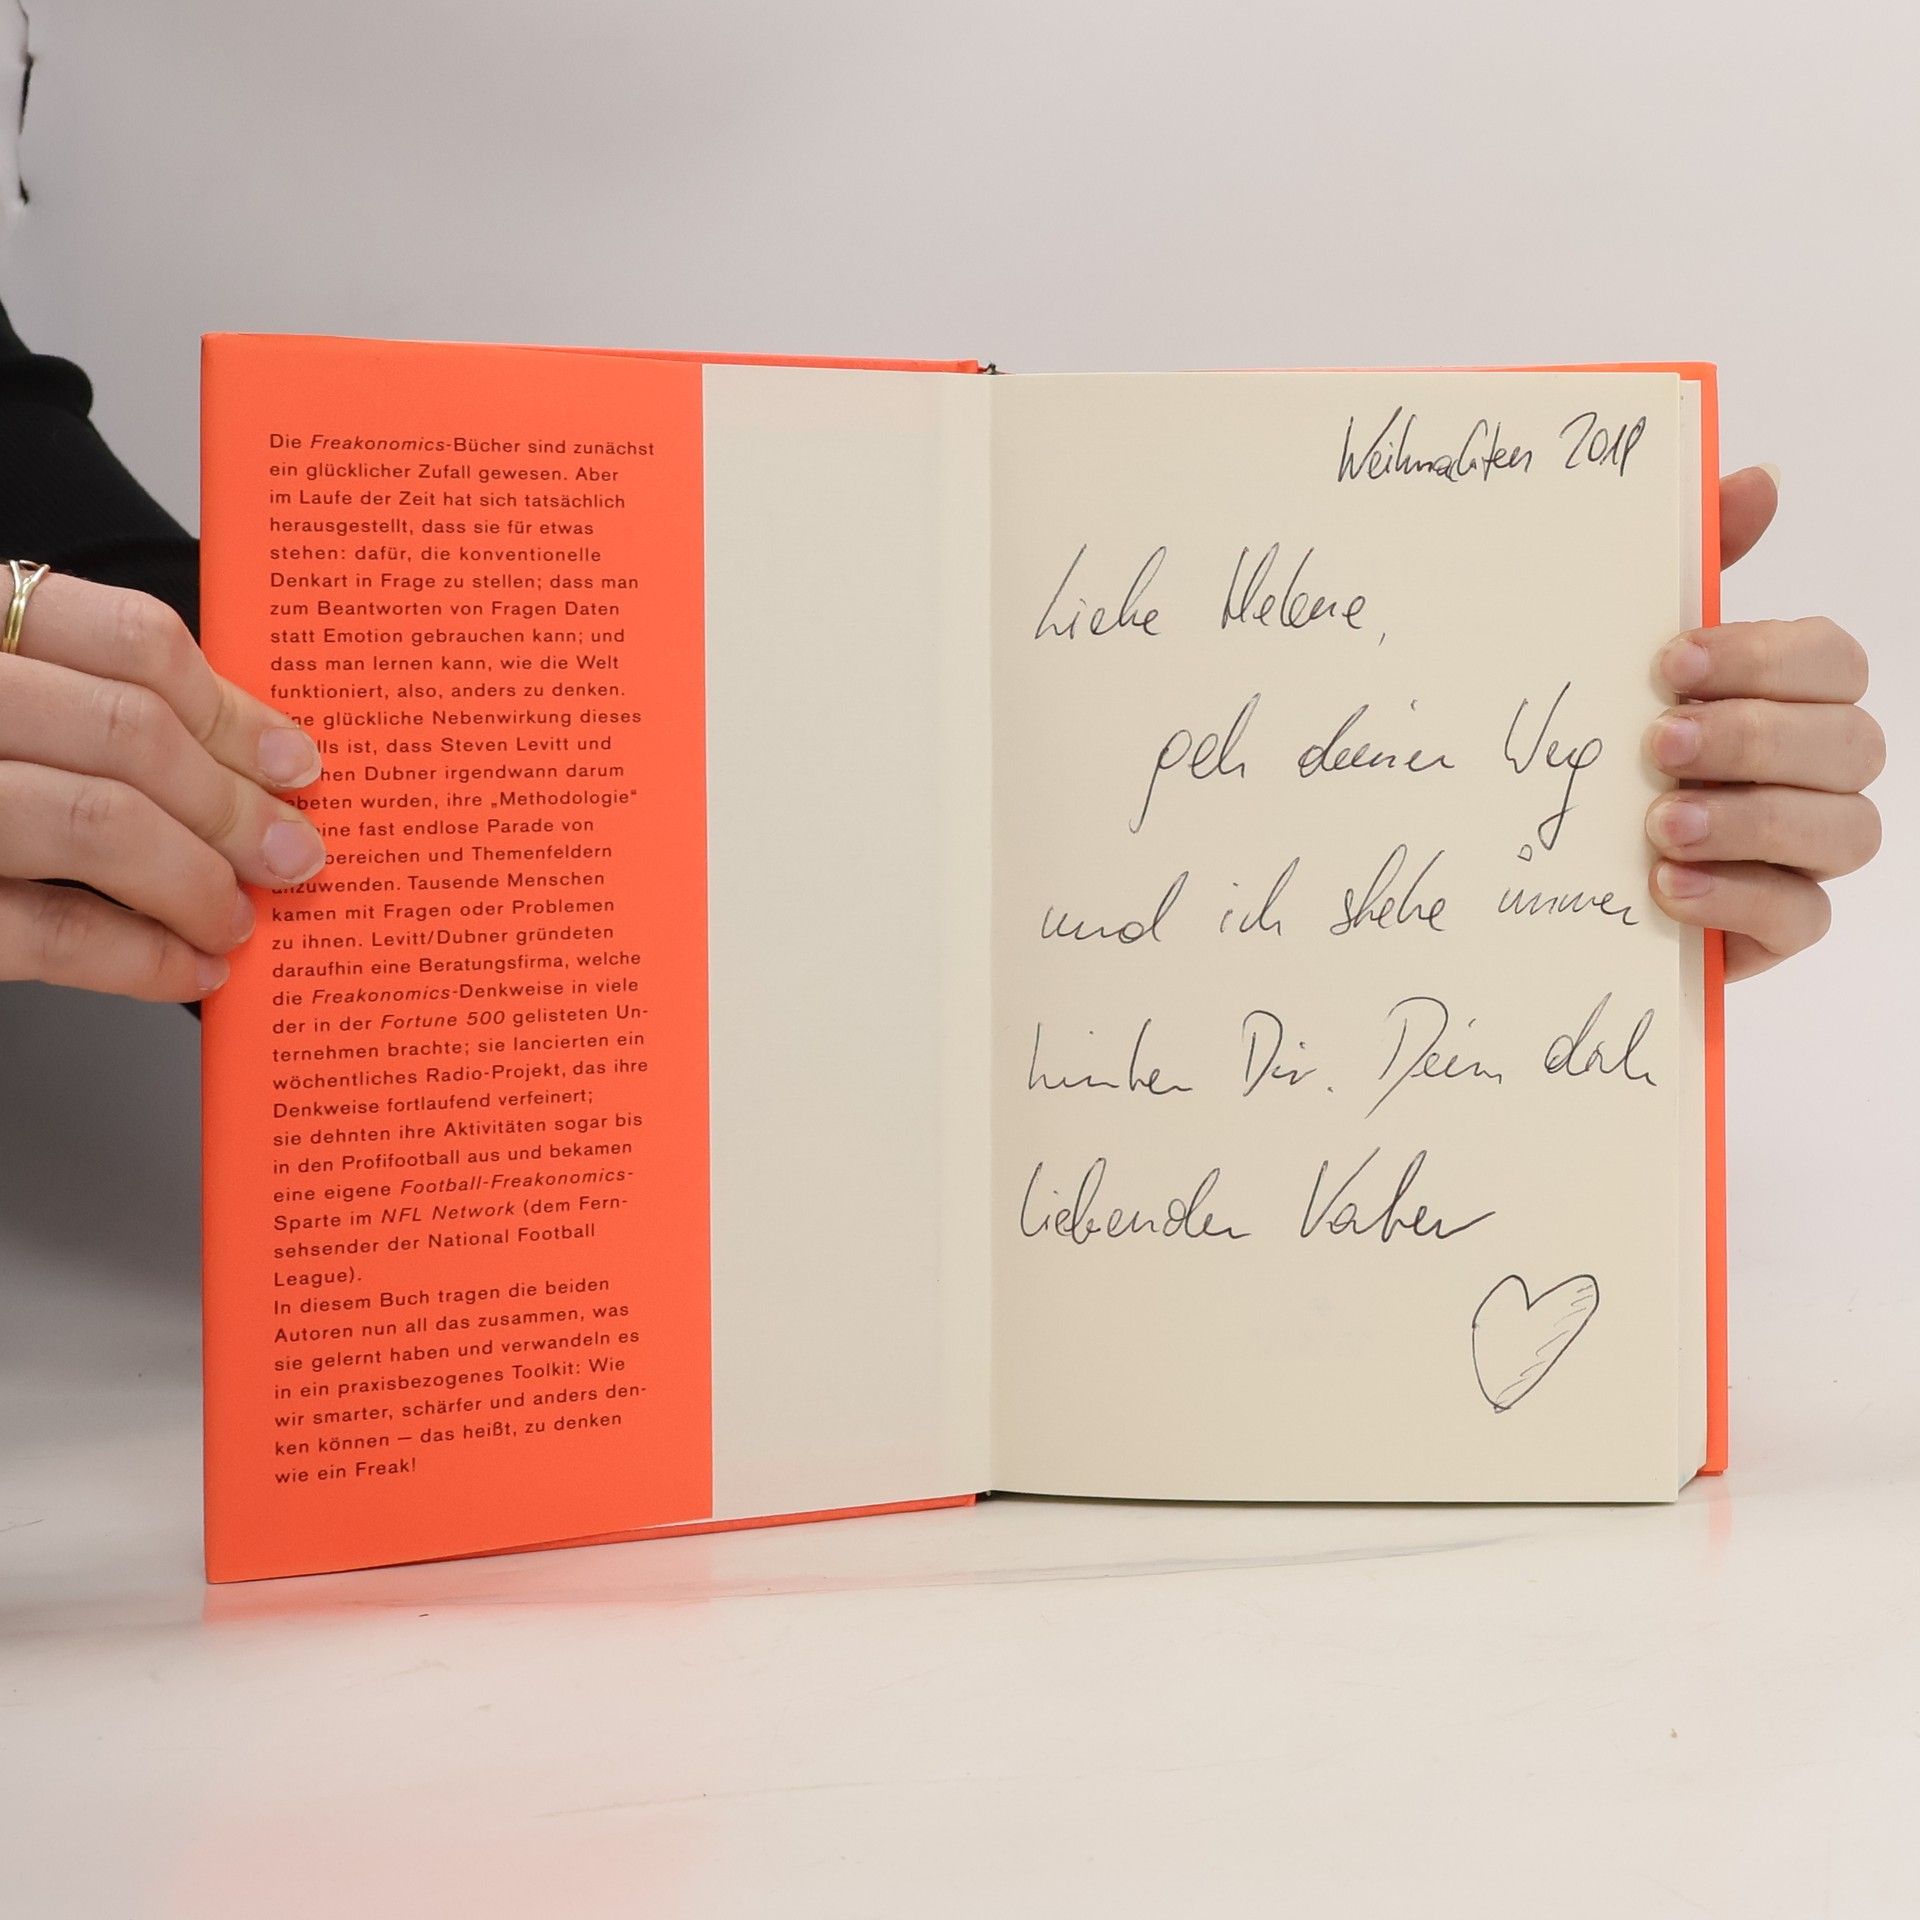 Die Freakonomics-Bücher sind zunächst
ein glücklicher Zufall gewesen. Aber
im Laufe der Zeit hat sich tatsächlich
herausgestellt, dass sie für etwas
stehen: dafür, die konventionelle
Denkart in Frage zu stellen; dass man
zum Beantworten von Fragen Daten
statt Emotion gebrauchen kann; und
dass man lernen kann, wie die Welt
funktioniert, also, anders zu denken.
glückliche Nebenwirkung dieses
ist, dass Steven Levitt und
Dubner irgendwann darum
wurden, ihre „Methodologie“
fast endlose Parade von
und Themenfeldern
anzuwenden. Tausende Menschen
kamen mit Fragen oder Problemen
zu ihnen. Levitt/Dubner gründeten
daraufhin eine Beratungsfirma, welche
die Freakonomics-Denkweise in viele
der in der Fortune 500 gelisteten Un-
ternehmen brachte; sie lancierten ein
wöchentliches Radio-Projekt, das ihre
Denkweise fortlaufend verfeinert;
sie dehnten ihre Aktivitäten sogar bis
in den Profifootball aus und bekamen
eine eigene Football-Freakonomics-
Sparte im NFL Network (dem Fern-
sehsender der National Football
League).
In diesem Buch tragen die beiden
Autoren nun all das zusammen, was
sie gelernt haben und verwandeln es
in ein praxisbezogenes Toolkit: Wie
wir smarter, schärfer und anders den-
ken können – das heißt, zu denken
wie ein Freak!
Weihnachten 2018
Liebe Helene,
geh deinen Weg
und ich stehe immer
hinter Dir. Dein dich
liebender Vater